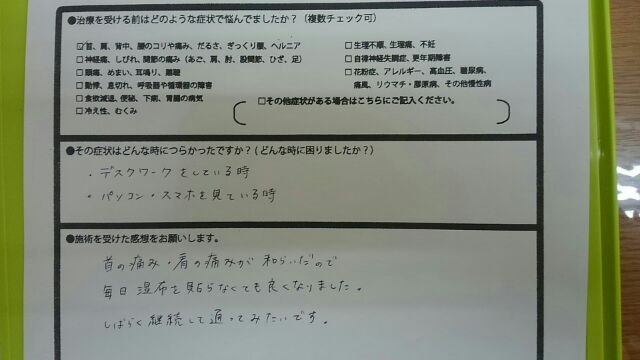 ●治療を受ける前はどのような症状で悩んでましたか？（複数チェック可）
☑首、肩、背中、腰のコリや痛み、だるさ、ぎっくり腰、ヘルニア
□神経痛、しびれ、関節の痛み（あご、肩、肘、股関節、ひざ、足）
□頭痛、めまい、耳鳴り、難聴
□動悸、息切れ、呼吸器や循環器の障害
□食欲減退、便秘、下痢、胃腸の病気
□冷え性、むくみ
□生理不順、生理痛、不妊
□自律神経失調症、更年期障害
□花粉症、アレルギー、高血圧、糖尿病、
痛風、リウマチ・膠原病、その他慢性病
□その他症状がある場合はこちらにご記入ください。
●その症状はどんな時につらかったですか？(どんな時に困りましたか？)
・デスクワークをしている時
・パソコン・スマホを見ている時
●施術を受けた感想をお願いします。
首の痛み・肩の痛みが和らいだので
毎日湿布を貼らなくても良くなりました。
しばらく継続して通ってみたいです。